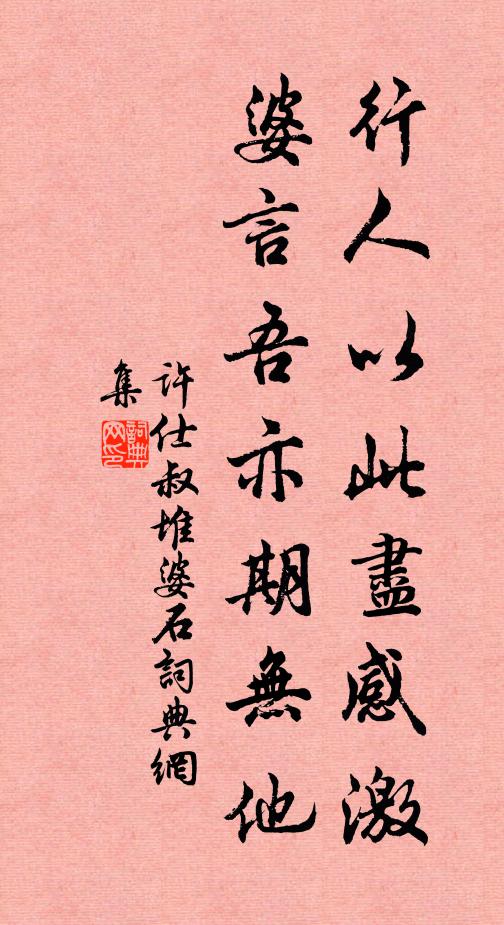 行人以此盡感激
婆言吾亦期無他
許仕叔堆婆石詞典網
集
詞典
网印